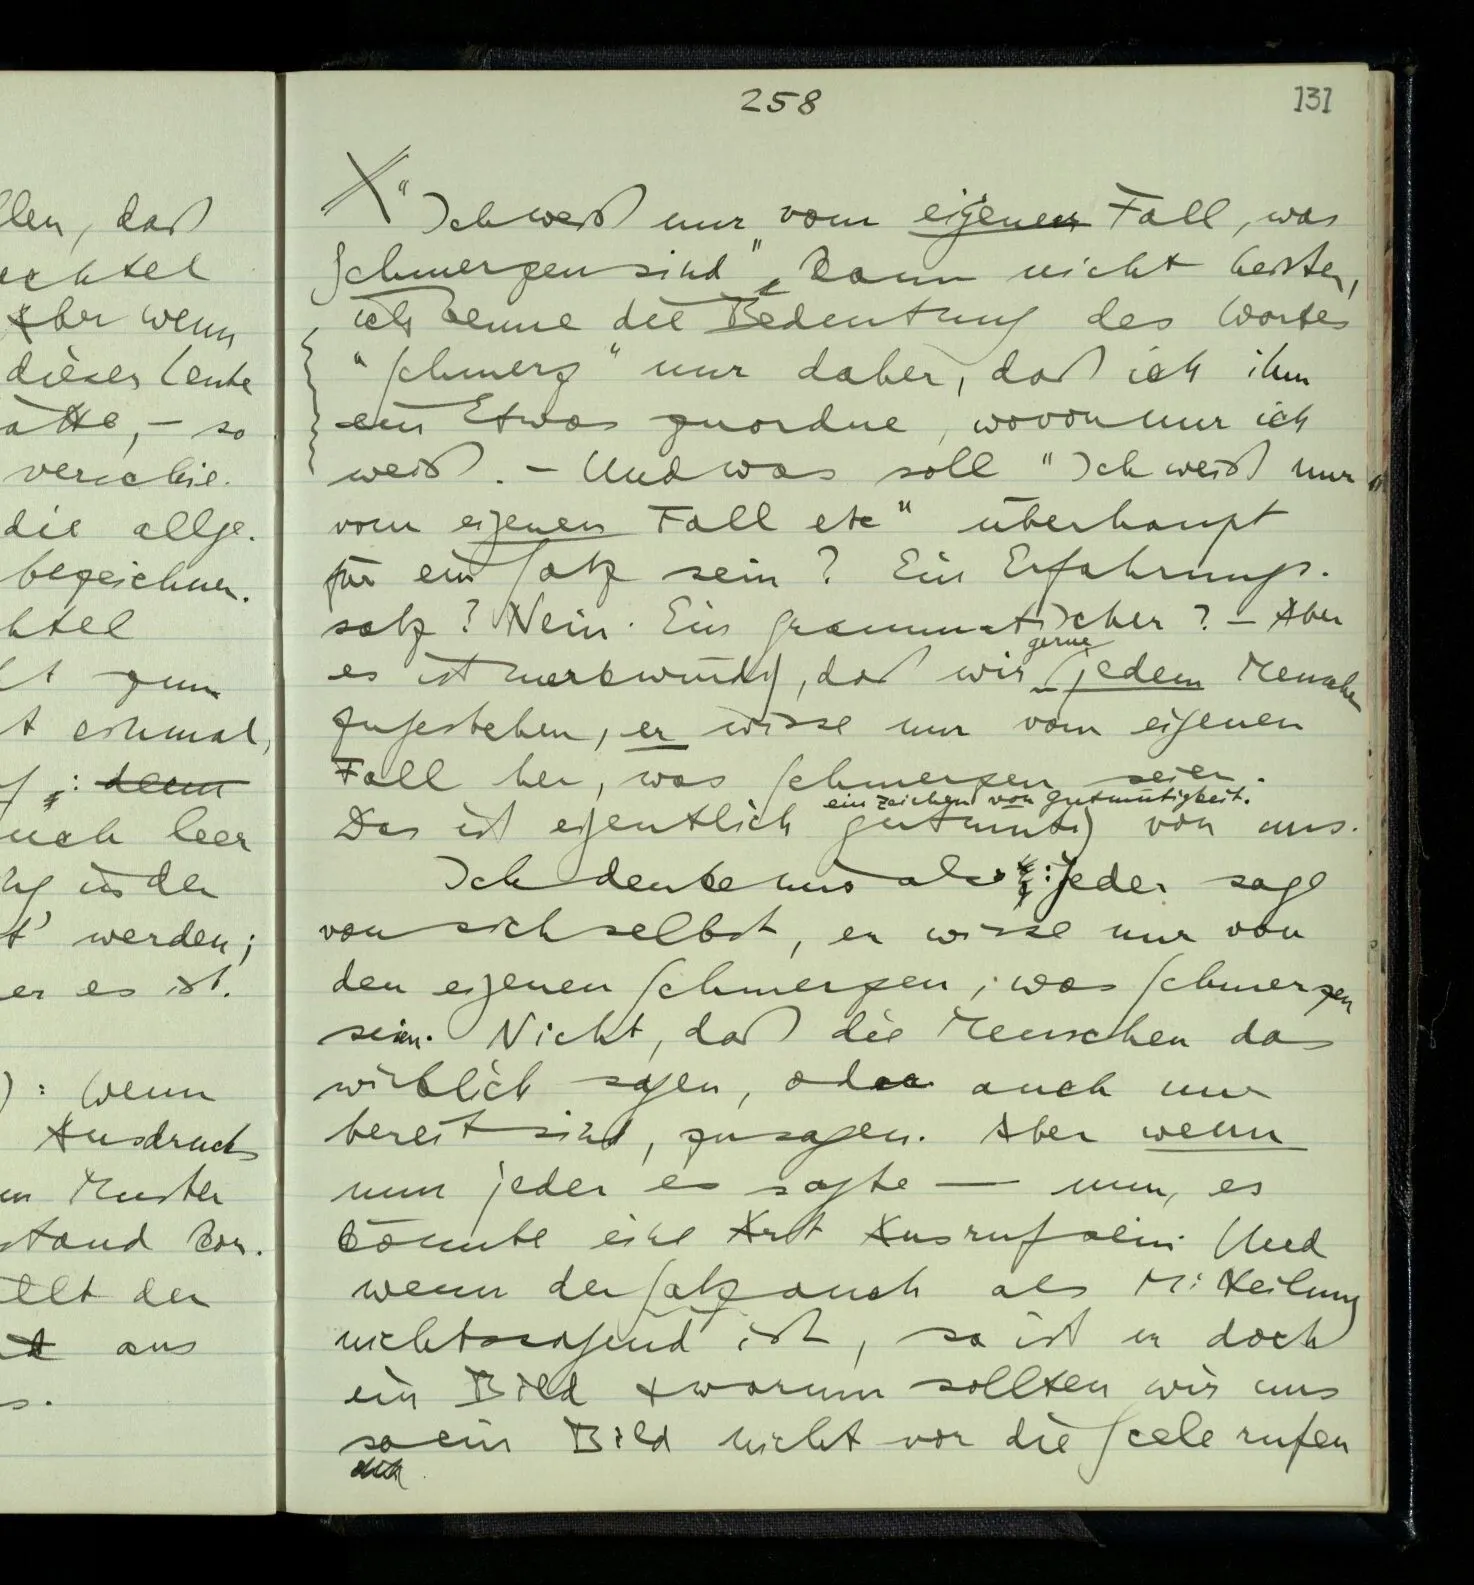 258
131
llen, daß
achtel
Aber wenn
dieser Leute
ätte, – so
verschie-
die allge-
bezeichnen.
htel
t zum
t einmal,
: denn
uch leer
in der
t' werden;
er es ist.
): Wenn
Ausdrucks
Muster
stand kon-
llt der
aus
s.
"Ich weiß nur vom eigenen Fall, was
Schmerzen sind", kann nicht heißen,
ich kenne die Bedeutung des Wortes
"Schmerz" nur daher, daß ich ihm
ein Etwas zuordne, wovon nur ich
weiß. – Und was soll "Ich weiß nur
vom eigenen Fall etc" überhaupt
für ein Satz sein? Ein Erfahrungs-
satz? Nein. Ein grammatischer? – Aber
gerne
es ist merkwürdig, daß wir jedem Menschen
zugestehen, er wisse nur vom eigenen
Fall her, was Schmerzen seien.
ein Zeichen von Gutmütigkeit.
Das ist eigentlich gutmütig von uns.
Ich denke mir also: Jeder sage
von sich selbst, er wisse nur von
den eigenen Schmerzen, was Schmerzen
seien. Nicht, daß die Menschen das
wirklich sagen, oder auch nur
bereit sind, zu sagen. Aber wenn
nun jeder es sagte — nun, es
könnte eine Art Ausruf sein. Und
wenn der Satz auch als Mitteilung
nichtssagend ist, so ist er doch
ein Bild & warum sollten wir uns
so ein Bild nicht vor die Seele rufen